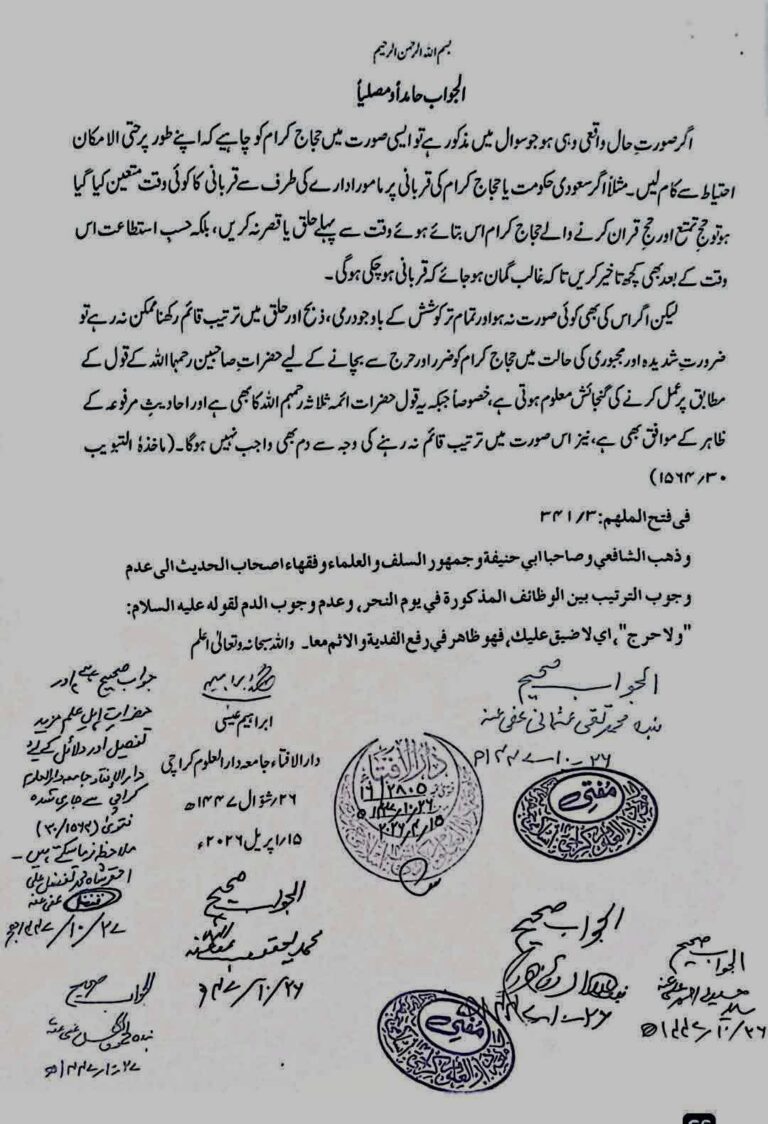 بسم اللہ الرحمن الرحیم
الجواب حامداً ومصلیاً
اگر صورتِ حال واقعی وہی ہو جو سوال میں مذکور ہے تو ایسی صورت میں حجاج کرام کو چاہیے کہ اپنے طور پر حتی الامکان
احتیاط سے کام لیں۔ مثلاً اگر سعودی حکومت یا حجاج کرام کی قربانی پر مامور ادارے کی طرف سے قربانی کا کوئی وقت متعین کیا گیا
ہو تو حجِ تمتع اور حجِ قران کرنے والے حجاج کرام اس بتائے ہوئے وقت سے پہلے حلق یا قصر نہ کریں، بلکہ حسبِ استطاعت اس
وقت کے بعد بھی کچھ تاخیر کریں تاکہ غالب گمان ہو جائے کہ قربانی ہو چکی ہوگی۔
لیکن اگر اس کی بھی کوئی صورت نہ ہو اور تمام تر کوشش کے باوجود رمی، ذبح اور حلق میں ترتیب قائم رکھنا ممکن نہ رہے تو
ضرورتِ شدیدہ اور مجبوری کی حالت میں حجاج کرام کو ضرر اور حرج سے بچانے کے لیے حضراتِ صاحبین رحمہا اللہ کے قول کے
مطابق پر عمل کرنے کی گنجائش معلوم ہوتی ہے، خصوصاً جبکہ یہ قول حضرات ائمہ ثلاثہ رحمہم اللہ کا بھی ہے اور احادیثِ مرفوعہ کے
ظاہر کے موافق بھی ہے، نیز اس صورت میں ترتیب قائم نہ رہنے کی وجہ سے دم بھی واجب نہیں ہوگا۔ (ماخذہٗ التبویب
۳۰/۱۵۶۴)
فی فتح الملهم: ۳/۳۴۱
وذهب الشافعي وصاحبا ابي حنيفة وجمهور السلف والعلماء وفقهاء اصحاب الحديث الى عدم
وجوب الترتيب بين الوظائف المذكورة في يوم النحر، وعدم وجوب الدم لقوله عليه السلام:
"ولا حرج"، اي لا ضيق عليك، فهو ظاهر في رفع الفدية والاثم معا۔ واللہ سبحانہ وتعالیٰ اعلم
الجواب صحیح
بندہ محمد تقی عثمانی عفی عنہ
۲۶-۱۰-۱۴۴۷ھ
مفتی
ابراہیم عیسیٰ
دارالافتاء جامعہ دارالعلوم کراچی
۲۶/شوال ۱۴۴۷ھ
۱۵/اپریل ۲۰۲۶ء
دارالافتاء
۲۸۰۵
۱۶
جواب صحیح ہے اور
حضراتِ اہلِ علم مزید
تفصیل اور دلائل کے لیے
دارالافتاء جامعہ دارالعلوم
کراچی سے جاری شدہ
فتویٰ (۳۰/۱۵۶۴)
ملاحظہ فرما سکتے ہیں۔
احقر شاہ محمد تفضل علی
عفی عنہ
۲۷/۱۰/۱۴۴۷ھ
الجواب صحیح
محمد یعقوب عفا اللہ عنہ
۲۶/۱۰/۴۷ھ
الجواب صحیح
۲۶-۱۰-۱۴۴۷ھ
مفتی
الجواب صحیح
۲۶/۱۰/۱۴۴۷ھ
الجواب صحیح
۲۷-۱۰-۱۴۴۷ھ